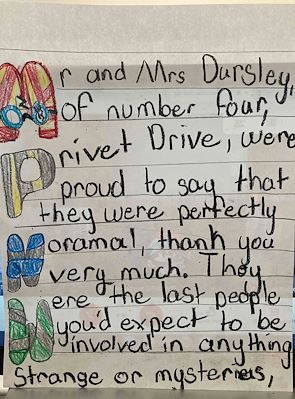 Mr and Mrs Dursley,
of number four,
Privet Drive, were
proud to say that
they were perfectly
Noramal, thank you
very much. They
Were the last people
you'd expect to be
involved in anything
Strange or mysteries,